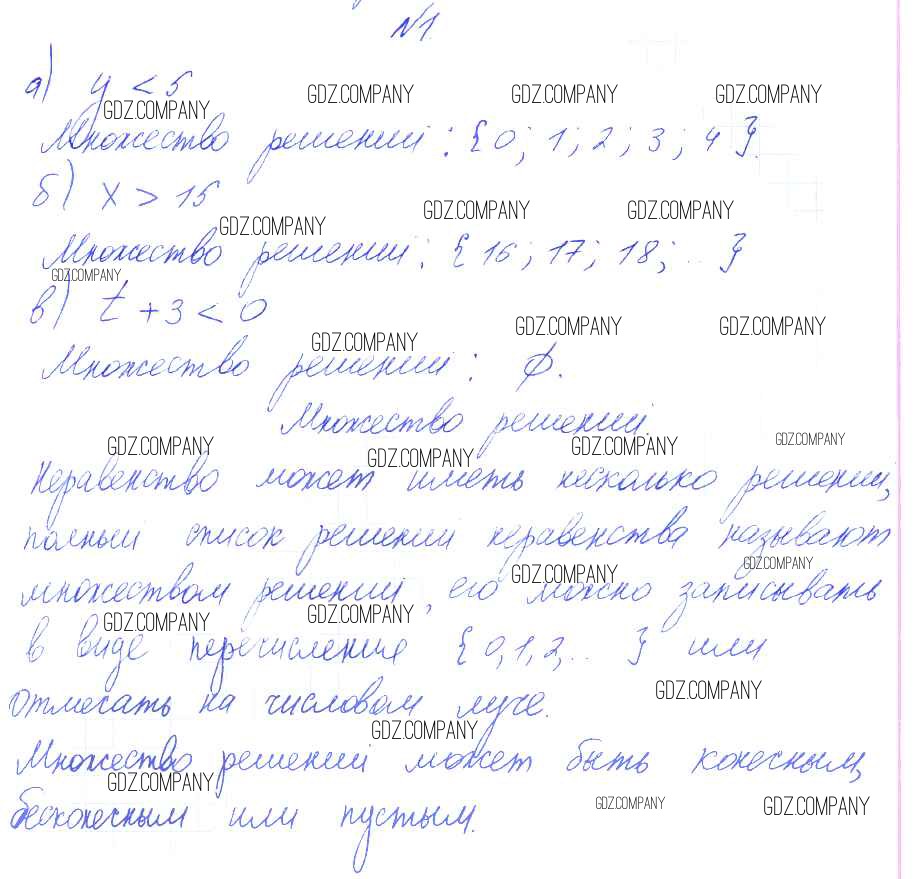 №1.
а) y < 5
GDZ.COMPANY GDZ.COMPANY GDZ.COMPANY GDZ.COMPANY
Множество решений: {0; 1; 2; 3; 4}.
б) x > 15
GDZ.COMPANY GDZ.COMPANY GDZ.COMPANY
Множество решений: {16; 17; 18; ...}
GDZ.COMPANY
в) t + 3 < 0
GDZ.COMPANY GDZ.COMPANY GDZ.COMPANY
Множество решений: ∅.
Множество решений.
GDZ.COMPANY GDZ.COMPANY GDZ.COMPANY GDZ.COMPANY
Неравенство может иметь несколько решений,
полный список решений неравенства называют
GDZ.COMPANY GDZ.COMPANY
множеством решений, его можно записывать
GDZ.COMPANY GDZ.COMPANY
в виде перечисления {0,1,2,...} или
отмечать на числовом луче.
GDZ.COMPANY GDZ.COMPANY
Множество решений может быть конечным,
GDZ.COMPANY GDZ.COMPANY GDZ.COMPANY
бесконечным или пустым.